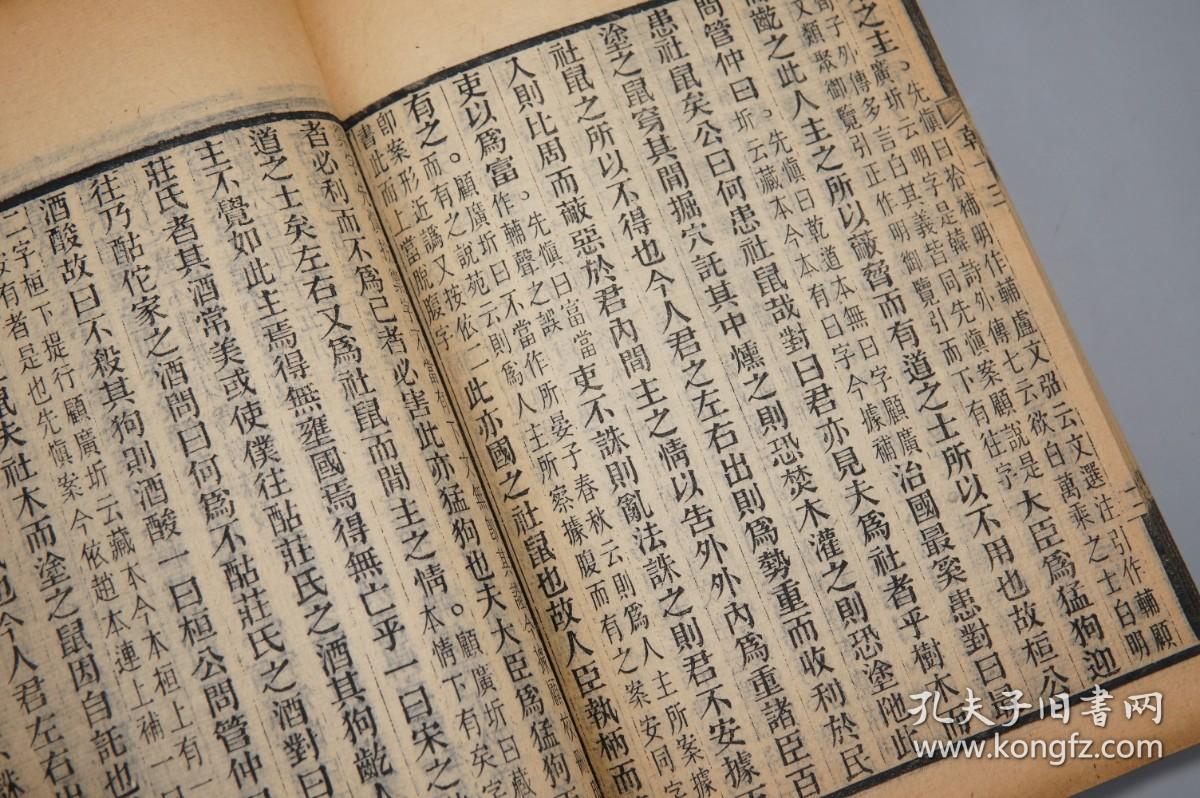 之主、先愼曰拾補明作輔盧文弨云文選注引作輔顧
廣圻云明字是韓詩外傳七云欲白萬乘之主白明
荀子外傳多言白其義皆同先愼案顧說是大臣爲猛狗迎
又類聚御覽引正作明御覽引而下有往字
而齕之此人主之所以蔽脅而有道之士所以不用也故桓公
問管仲曰先愼曰乾道本無曰字顧廣圻云藏本今本有曰字今據補治國最奚患對曰最
患社鼠矣公曰何患社鼠哉對曰君亦見夫爲社者乎樹木而
塗之鼠穿其間掘穴託其中燻之則恐焚木灌之則恐塗阤此
社鼠之所以不得也今人君之左右出則爲勢重而收利於民
入則比周而蔽惡於君內間主之情以告外外內爲重諸臣百
吏以爲富先愼曰富當作輔聲之誤吏不誅則亂法誅之則君不安據
有之。顧廣圻曰不當作所晏子春秋云則爲人主所案據腹而
有之說苑云則爲人主所察據腹而有之案安同字
即案形近譌又按依二
書此而上當脫腹字此亦國之社鼠也故人臣執柄而
者必利而不爲己者必害此亦猛狗也夫大臣爲猛狗
道之士矣左右又爲社鼠而間主之情。顧廣圻曰藏本情下有矣字
主不覺如此主焉得無壅國焉得無亡乎一曰宋之
莊氏者其酒常美或使僕往酤莊氏之酒其狗齕人
往乃酤佗家之酒問曰何爲不酤莊氏之酒對曰
酒酸故曰不殺其狗則酒酸一曰桓公問管仲
顧廣圻云藏本今本桓上有一
二字桓下提行
者是也先愼案今依趙本連上補一
鼠夫社木而塗之鼠因自託也
今人君左右出
孔夫子旧书网
www.kongfz.com